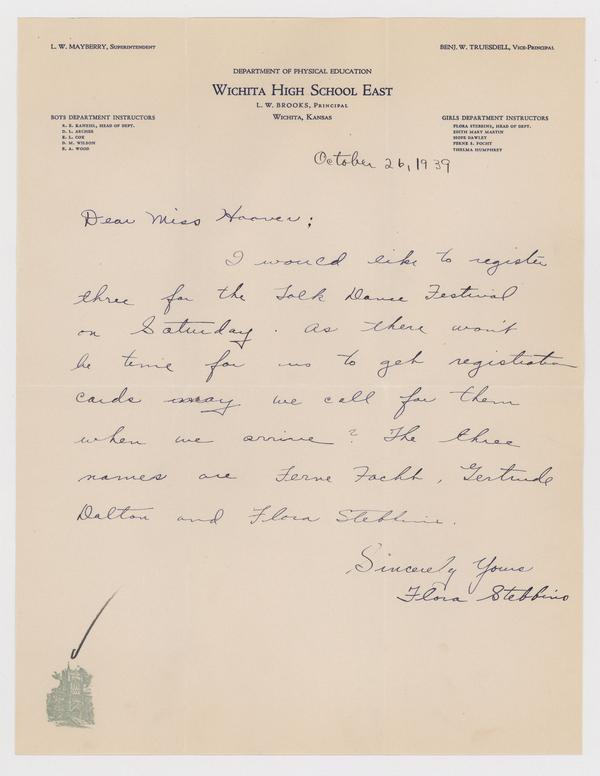 L. W. MAYBERRY, SUPERINTENDENT
BENJ. W. TRUESDELL, VICE-PRINCIPAL
DEPARTMENT OF PHYSICAL EDUCATION
WICHITA HIGH SCHOOL EAST
L. W. BROOKS, PRINCIPAL
WICHITA, KANSAS
BOYS DEPARTMENT INSTRUCTORS
HEAD OF DEPT.
D. L. ARCHER
E. L. COX
D. M. WILSON
E. A. WOOD
GIRLS DEPARTMENT INSTRUCTORS
FLORA STEBBINS, HEAD OF DEPT.
EDITH MARY MARTIN
HOPE DAWLEY
FERNE E. FOCHT
THELMA HUMPHREY
October 26, 1939
Dear Miss Hoover;
I would like to register
three for the Folk Dance Festival
on Saturday. As there won't
be time for us to get registration
cards may we call for them
when we arrive? The three
names are Ferne Focht, Gertrude
Dalton and Flora Stebbins.
Sincerely Yours
Flora Stebbins